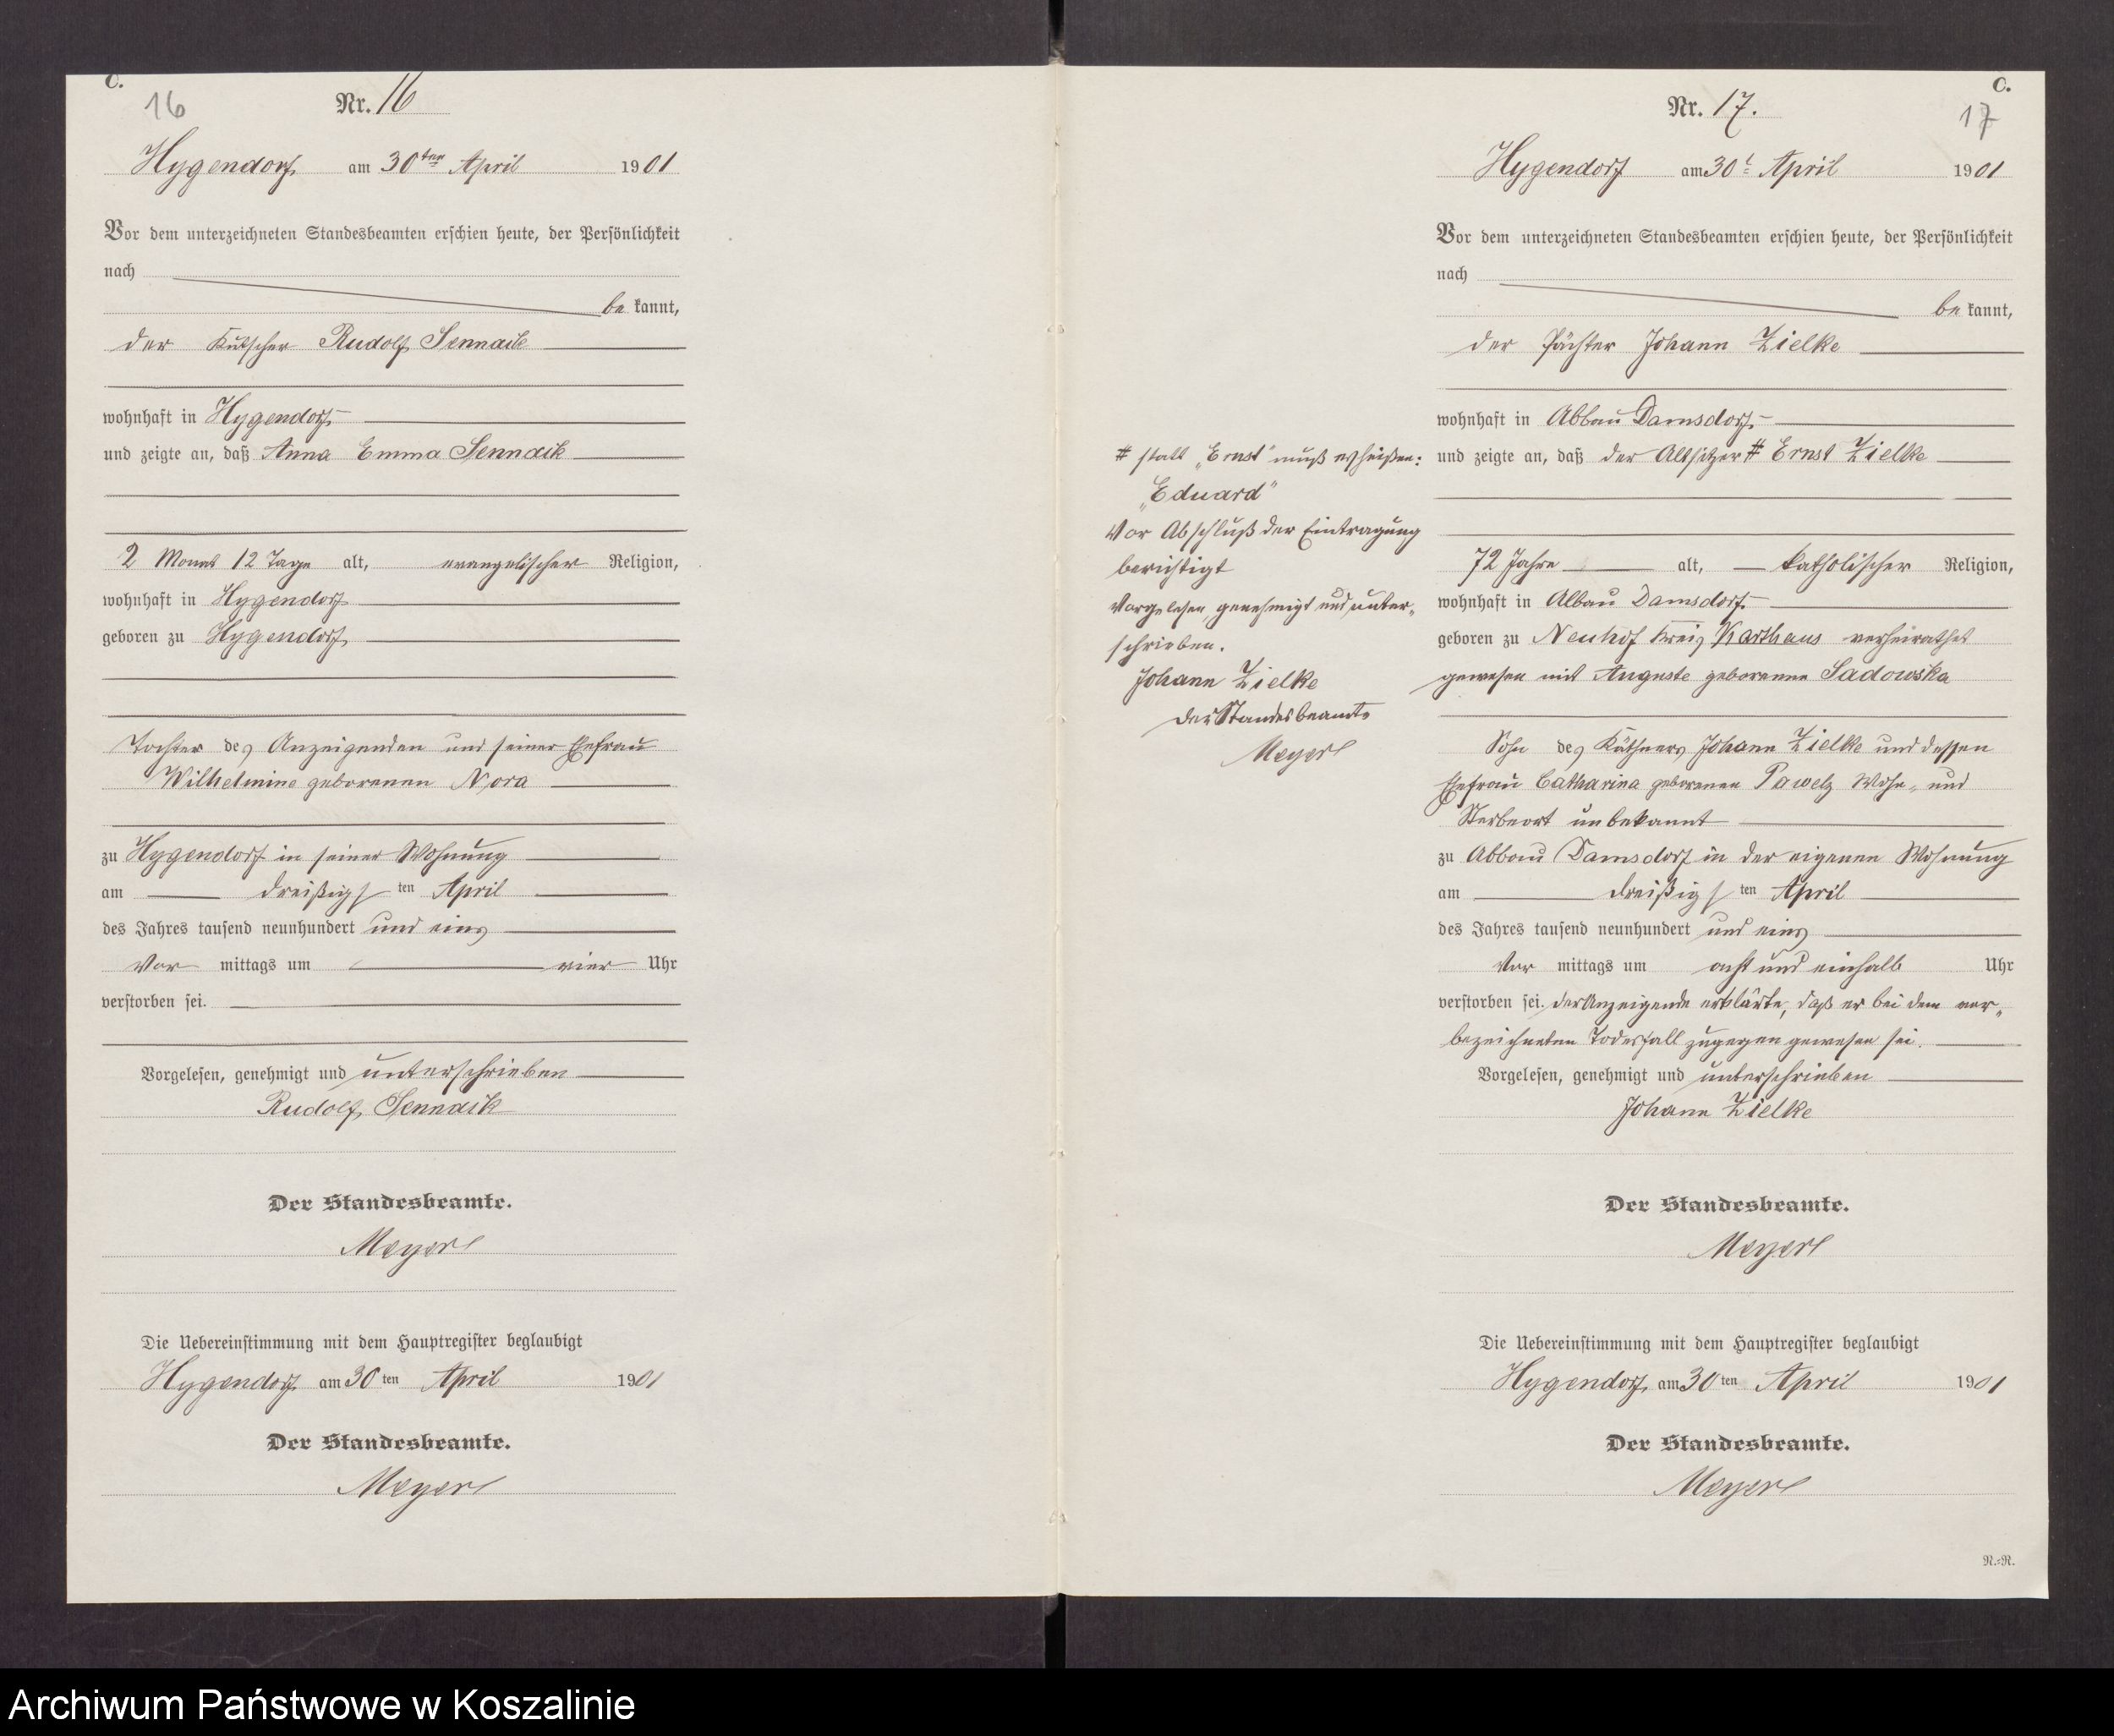 C.
16
Nr. 16
Hygendorf am 30ten April 1901
Vor dem unterzeichneten Standesbeamten erschien heute, der Persönlichkeit
nach
be kannt,
der Kutscher Rudolf Sennaik
wohnhaft in Hygendorf
und zeigte an, daß Anna Emma Sennaik
2 Monat 12 Tage alt, evangelischer Religion,
wohnhaft in Hygendorf
geboren zu Hygendorf
Tochter des Anzeigenden und seiner Ehefrau
Wilhelmine geborenen Nora
zu Hygendorf in seiner Wohnung
am dreißigs ten April
des Jahres tausend neunhundert und eins
Vor mittags um vier Uhr
verstorben sei.
Vorgelesen, genehmigt und unterschrieben
Rudolf Sennaik
Der Standesbeamte.
Meyer
Die Uebereinstimmung mit dem Hauptregister beglaubigt
Hygendorf am 30 ten April 1901
Der Standesbeamte.
Meyer
C.
17
Nr. 17.
Hygendorf am 30t April 1901
Vor dem unterzeichneten Standesbeamten erschien heute, der Persönlichkeit
nach
be kannt,
der Pächter Johann Zielke
wohnhaft in Abbau Damsdorf
und zeigte an, daß der Altsitzer # Ernst Zielke
72 Jahre alt, katholischer Religion,
wohnhaft in Abbau Damsdorf
geboren zu Neuhof Kreis Karthaus verheirathet
gewesen mit Auguste geborenen Sadowska
Sohn des Käthners Johann Zielke und dessen
Ehefrau Catharina geborenen Pawelz Wohn- und
Sterbeort unbekannt
zu Abbau Damsdorf in der eigenen Wohnung
am dreißigs ten April
des Jahres tausend neunhundert und eins
Vor mittags um acht und einhalb Uhr
verstorben sei. Der Anzeigende erklärte, daß er bei dem vor-
bezeichneten Todesfall zugegen gewesen sei.
Vorgelesen, genehmigt und unterschrieben
Johann Zielke
Der Standesbeamte.
Meyer
Die Uebereinstimmung mit dem Hauptregister beglaubigt
Hygendorf am 30 ten April 1901
Der Standesbeamte.
Meyer
# statt „Ernst" muß es heißen:
„Eduard"
Vor Abschluß der Eintragung
berichtigt
Vorgelesen, genehmigt und unter-
schrieben.
Johann Zielke
Der Standesbeamte
Meyer
N.=N.
Archiwum Państwowe w Koszalinie